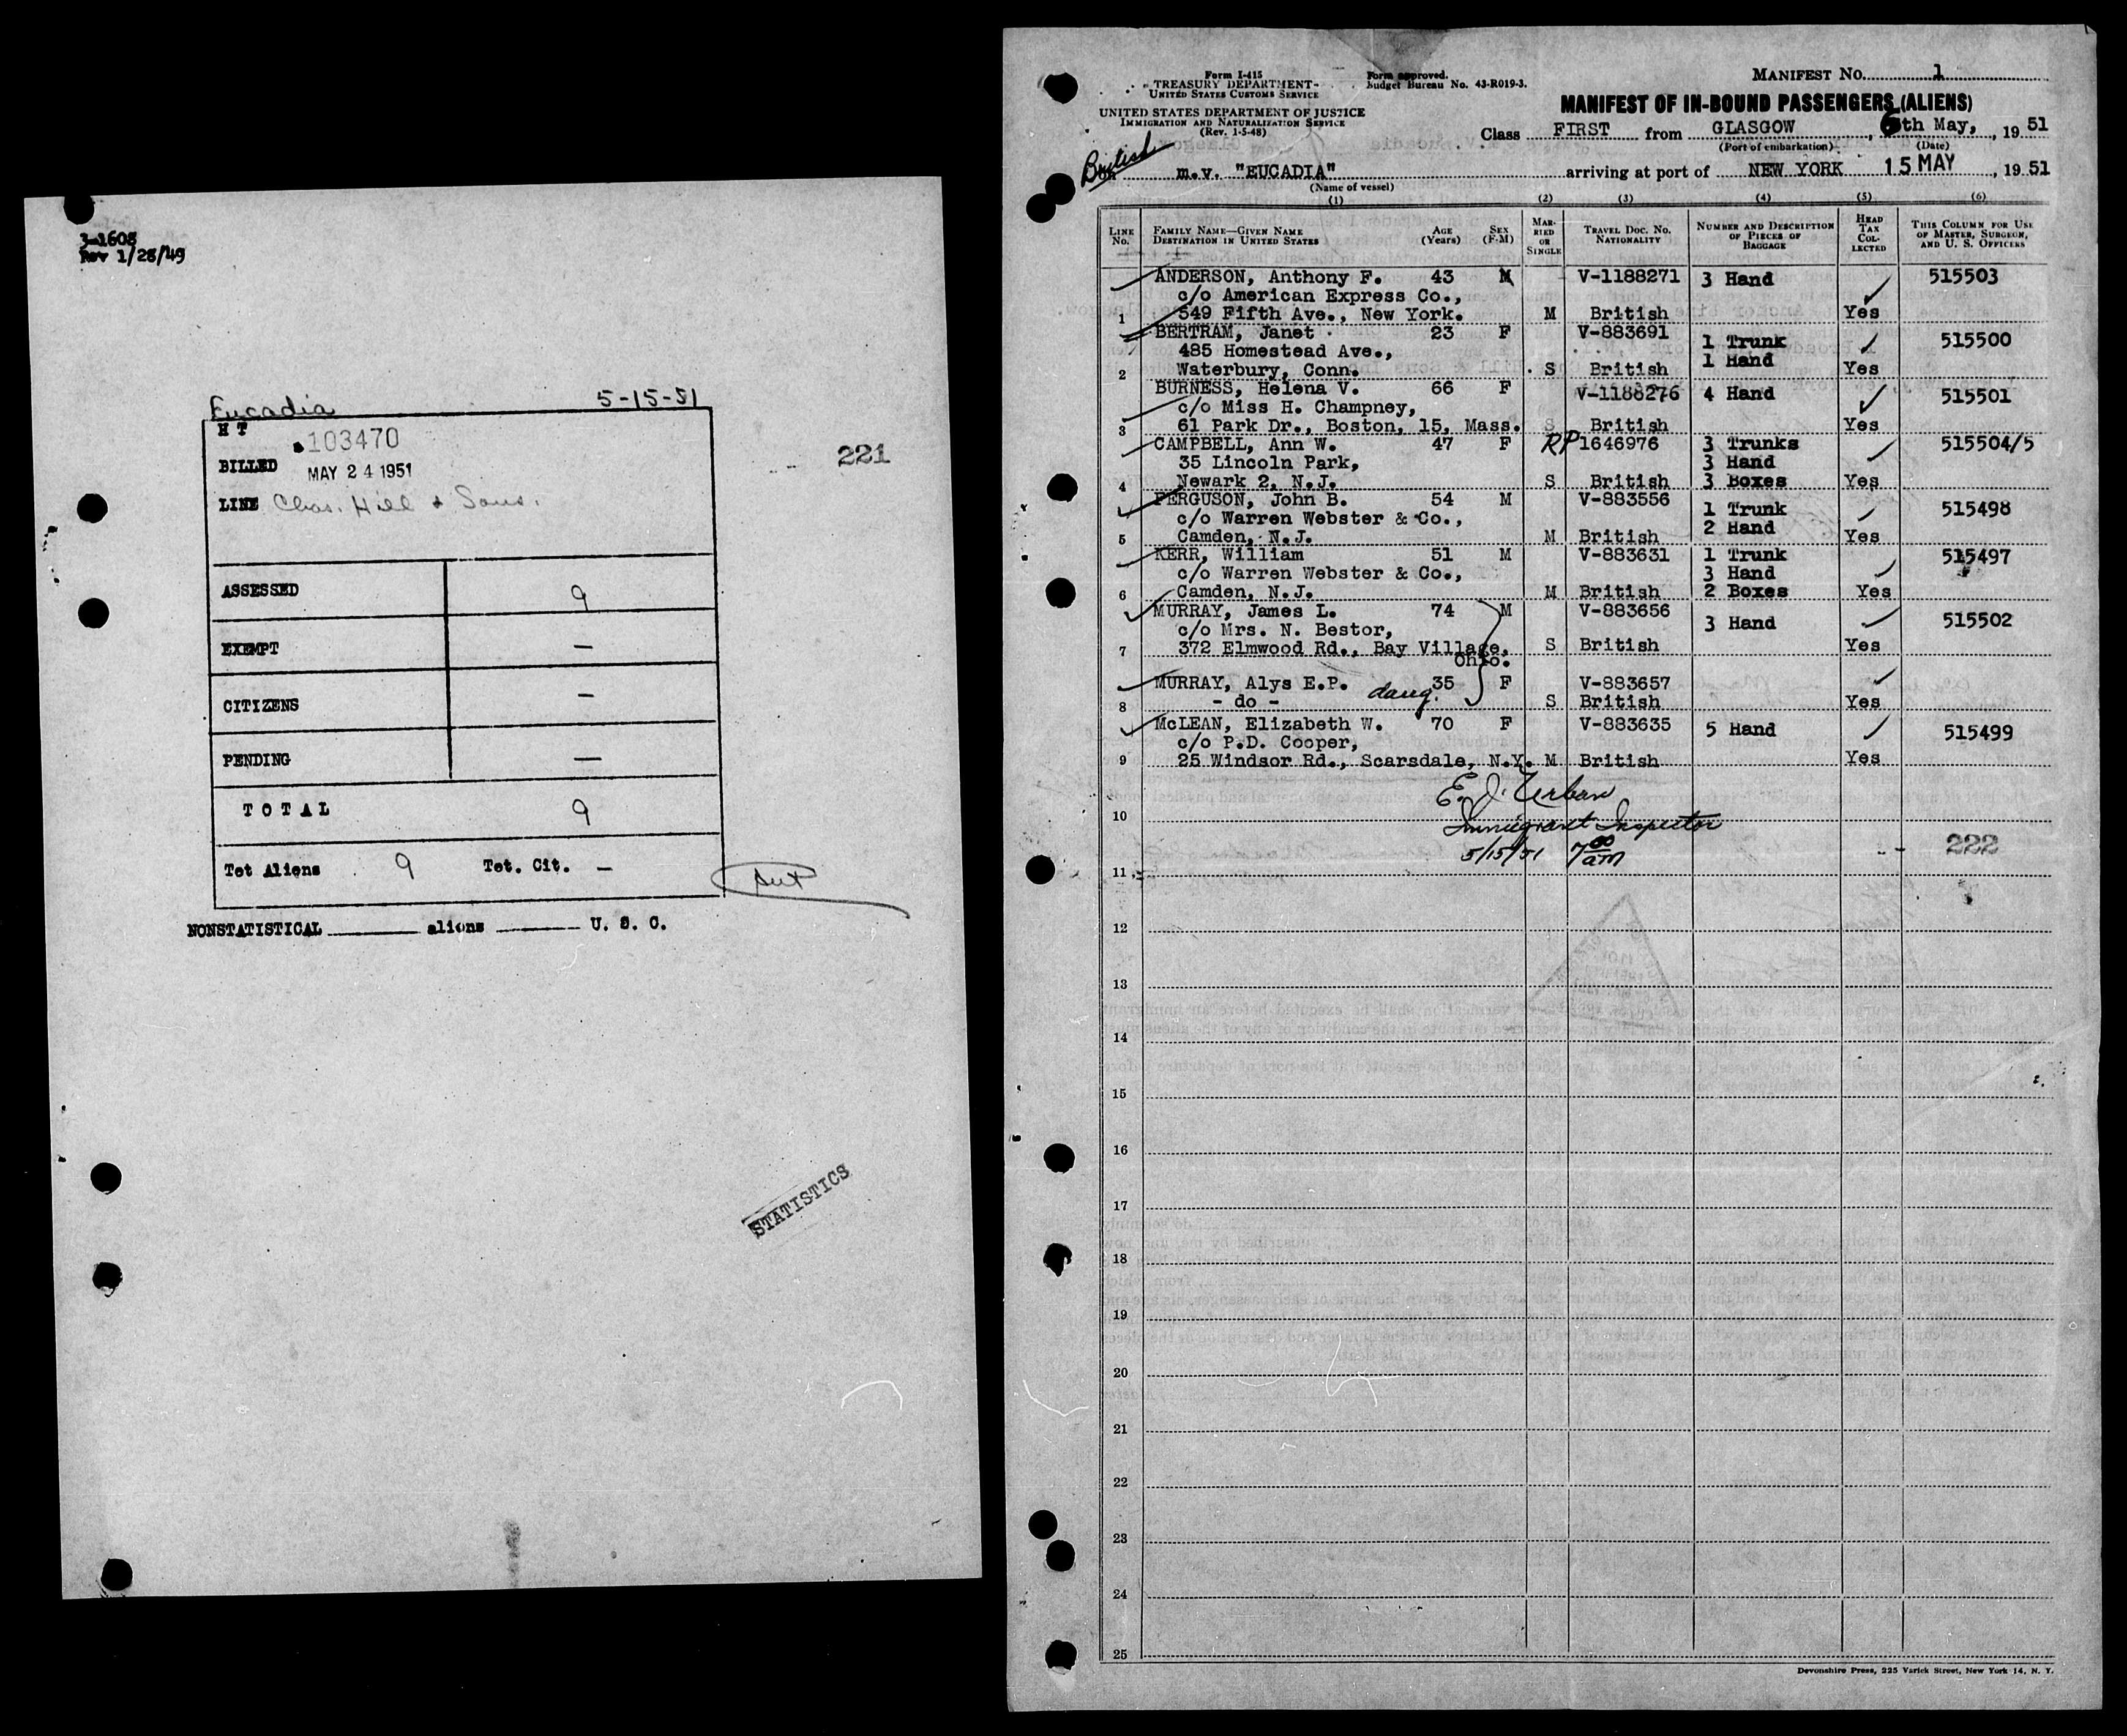 3-1608
Rev 1/28/49
Eucadia 5-15-51
H T 103470
BILLED MAY 24 1951
LINE Chas. Hill & Sons.
221
ASSESSED 9
EXEMPT —
CITIZENS —
PENDING —
TOTAL 9
Tot Aliens 9 Tot. Cit. —
NONSTATISTICAL aliens U. S. C.
STATISTICS
Form I-415
TREASURY DEPARTMENT
UNITED STATES CUSTOMS SERVICE
UNITED STATES DEPARTMENT OF JUSTICE
IMMIGRATION AND NATURALIZATION SERVICE
(Rev. 1-5-48)
Form approved.
Budget Bureau No. 43-R019-3.
MANIFEST NO. 1
MANIFEST OF IN-BOUND PASSENGERS (ALIENS)
Class FIRST from GLASGOW, 6th May, 1951
(Port of embarkation) (Date)
British
on m.v. "EUCADIA" arriving at port of NEW YORK 15 MAY, 1951
(Name of vessel)
(1) (2) (3) (4) (5) (6)
LINE No. FAMILY NAME—GIVEN NAME DESTINATION IN UNITED STATES AGE (Years) SEX (F-M) MARRIED OR SINGLE TRAVEL DOC. NO. NATIONALITY NUMBER AND DESCRIPTION OF PIECES OF BAGGAGE HEAD TAX COLLECTED THIS COLUMN FOR USE OF MASTER, SURGEON, AND U. S. OFFICERS
ANDERSON, Anthony F. 43 M V-1188271 3 Hand 515503
c/o American Express Co.,
1 549 Fifth Ave., New York. M British Yes
BERTRAM, Janet 23 F V-883691 1 Trunk 515500
485 Homestead Ave., 1 Hand
2 Waterbury, Conn. S British Yes
BURNESS, Helena V. 66 F V-1188276 4 Hand 515501
c/o Miss H. Champney,
3 61 Park Dr., Boston, 15, Mass. S British Yes
CAMPBELL, Ann W. 47 F RP 1646976 3 Trunks 515504/5
35 Lincoln Park, 3 Hand
4 Newark 2, N.J. S British 3 Boxes Yes
FERGUSON, John B. 54 M V-883556 1 Trunk 515498
c/o Warren Webster & Co., 2 Hand
5 Camden, N.J. M British Yes
KERR, William 51 M V-883631 1 Trunk 515497
c/o Warren Webster & Co., 3 Hand
6 Camden, N.J. M British 2 Boxes Yes
MURRAY, James L. 74 M V-883656 3 Hand 515502
c/o Mrs. N. Bestor,
7 372 Elmwood Rd., Bay Village, S British Yes
Ohio.
MURRAY, Alys E.P. daug. 35 F V-883657
8 - do - S British Yes
McLEAN, Elizabeth W. 70 F V-883635 5 Hand 515499
c/o P.D. Cooper,
9 25 Windsor Rd., Scarsdale, N.Y. M British Yes
E. J. Urban
10 Immigrant Inspector
5/15/51 7 00 am
222
11
12
13
14
15
16
17
18
19
20
21
22
23
24
25
Devonshire Press, 225 Varick Street, New York 14, N. Y.